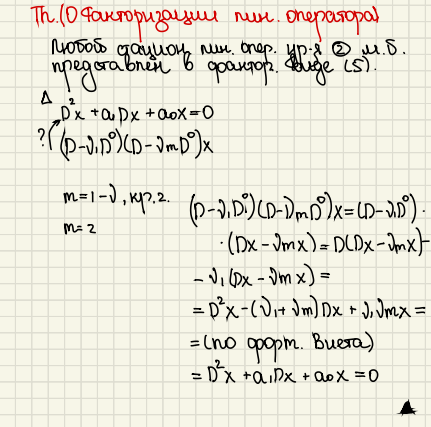 Th. (О Факторизации лин. оператора)
Любой стацион. лин. опер. ур-я ② м.б.
представлен в фактор. виде (5).
Δ
D²x + a₁Dx + a₀x = 0
? (D - ν₁D⁰)(D - νmD⁰)x
m = 1 - ν, кр. 2.
m = 2
(D - ν₁D⁰)(D - νmD⁰)x = (D - ν₁D⁰) ·
· (Dx - νmx) = D(Dx - νmx) -
- ν₁(Dx - νmx) =
= D²x - (ν₁ + νm)Dx + ν₁νmx =
= (по форт. Виета)
= D²x + a₁Dx + a₀x = 0
▲